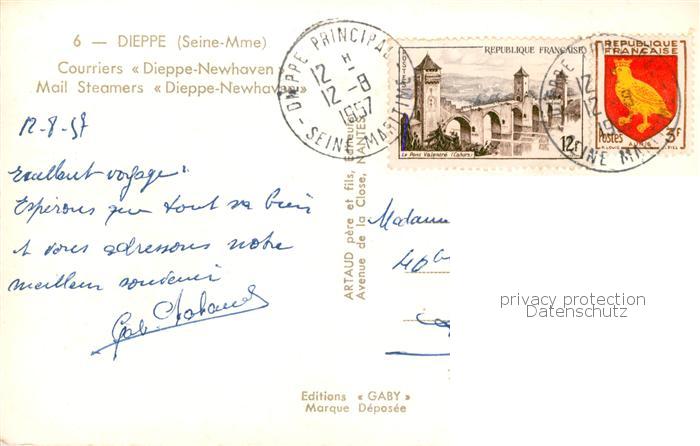 6 — DIEPPE (Seine-Mme)
Courriers « Dieppe-Newhaven
Mail Steamers « Dieppe-Newhaven »
12-8-57
Excellent voyage.
Espérons que tout va bien
et vous adressons notre
meilleur souvenir
DIEPPE PRINCIPAL
12 H
12 -8
1957
SEINE MARITIME
ARTAUD père et fils, Editeurs
Avenue de la Close, NANTES
REPUBLIQUE FRANÇAISE
POSTES
Le Pont Valentré (Cahors)
12F
REPUBLIQUE
FRANÇAISE
Postes
AUNIS
3F
12
INE MA
Madame
privacy protection
Datenschutz
Editions « GABY »
Marque Déposée